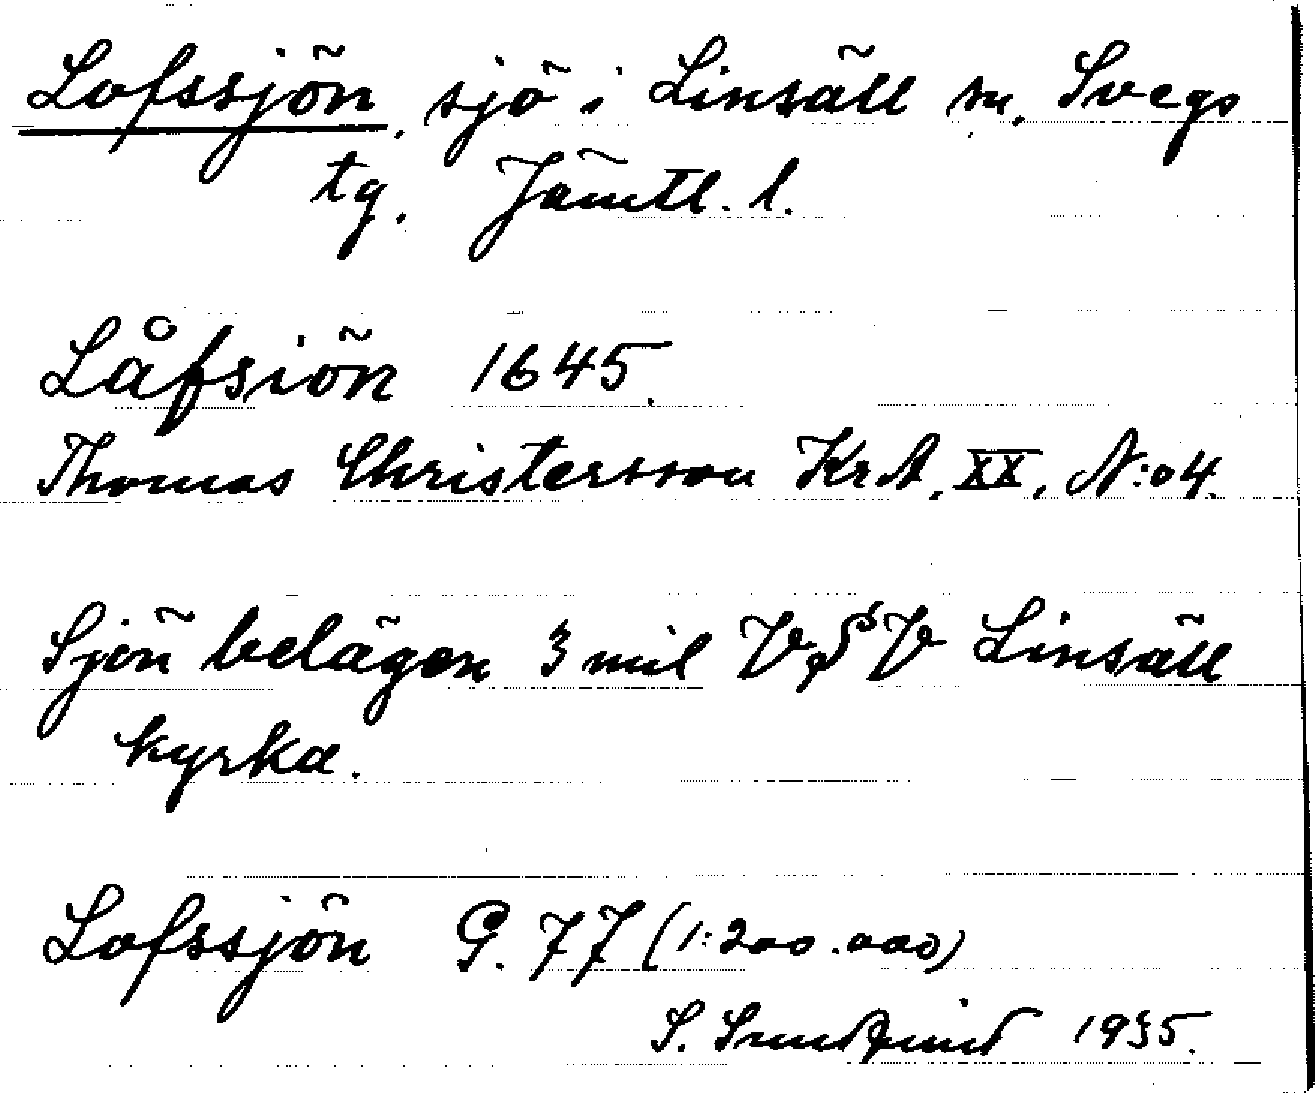 Lofssjön, sjö i Linsäll sn, Svegs
tg. Jämtl. l.
Låfsiön 1645.
Thomas Christersson KrA, XX, N:o 4.
Sjön belägen 3 mil VSV Linsäll
kyrka.
Lofssjön G. 77 (1:200.000)
S. Sundqvist 1935.